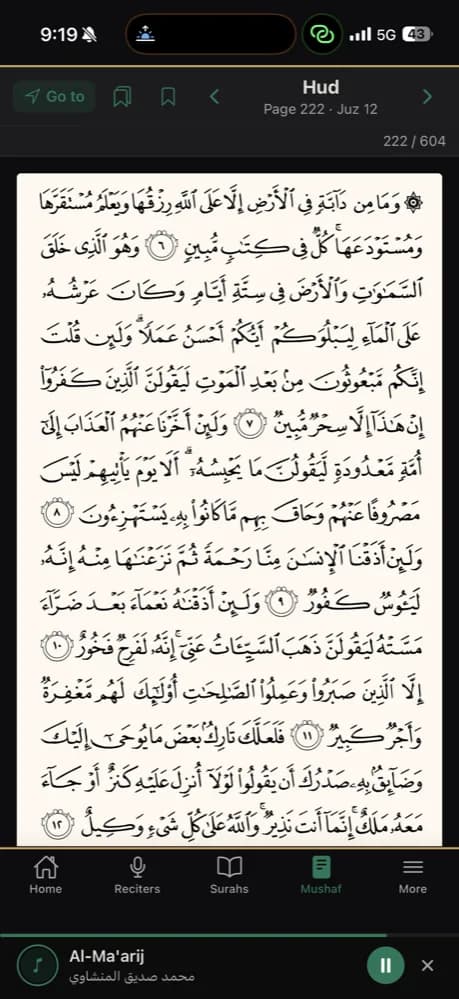 9:19
5G 43
Go to
Hud
Page 222 · Juz 12
222 / 604
۞ وَمَا مِن دَآبَّةٍ فِي ٱلْأَرْضِ إِلَّا عَلَى ٱللَّهِ رِزْقُهَا وَيَعْلَمُ مُسْتَقَرَّهَا
وَمُسْتَوْدَعَهَاۚ كُلٌّ فِي كِتَٰبٍ مُّبِينٍ ٦ وَهُوَ ٱلَّذِي خَلَقَ
ٱلسَّمَٰوَٰتِ وَٱلْأَرْضَ فِي سِتَّةِ أَيَّامٍ وَكَانَ عَرْشُهُۥ
عَلَى ٱلْمَآءِ لِيَبْلُوَكُمْ أَيُّكُمْ أَحْسَنُ عَمَلًاۗ وَلَئِن قُلْتَ
إِنَّكُم مَّبْعُوثُونَ مِنۢ بَعْدِ ٱلْمَوْتِ لَيَقُولَنَّ ٱلَّذِينَ كَفَرُوٓا۟
إِنْ هَٰذَآ إِلَّا سِحْرٌ مُّبِينٌ ٧ وَلَئِنْ أَخَّرْنَا عَنْهُمُ ٱلْعَذَابَ إِلَىٰٓ
أُمَّةٍ مَّعْدُودَةٍ لَّيَقُولُنَّ مَا يَحْبِسُهُۥٓۗ أَلَا يَوْمَ يَأْتِيهِمْ لَيْسَ
مَصْرُوفًا عَنْهُمْ وَحَاقَ بِهِم مَّا كَانُوا۟ بِهِۦ يَسْتَهْزِءُونَ ٨
وَلَئِنْ أَذَقْنَا ٱلْإِنسَٰنَ مِنَّا رَحْمَةً ثُمَّ نَزَعْنَٰهَا مِنْهُ إِنَّهُۥ
لَيَـُٔوسٌ كَفُورٌ ٩ وَلَئِنْ أَذَقْنَٰهُ نَعْمَآءَ بَعْدَ ضَرَّآءَ
مَسَّتْهُ لَيَقُولَنَّ ذَهَبَ ٱلسَّيِّـَٔاتُ عَنِّيٓۚ إِنَّهُۥ لَفَرِحٌ فَخُورٌ ١٠
إِلَّا ٱلَّذِينَ صَبَرُوا۟ وَعَمِلُوا۟ ٱلصَّٰلِحَٰتِ أُو۟لَٰٓئِكَ لَهُم مَّغْفِرَةٌ
وَأَجْرٌ كَبِيرٌ ١١ فَلَعَلَّكَ تَارِكٌۢ بَعْضَ مَا يُوحَىٰٓ إِلَيْكَ
وَضَآئِقٌۢ بِهِۦ صَدْرُكَ أَن يَقُولُوا۟ لَوْلَآ أُنزِلَ عَلَيْهِ كَنزٌ أَوْ جَآءَ
مَعَهُۥ مَلَكٌۚ إِنَّمَآ أَنتَ نَذِيرٌۚ وَٱللَّهُ عَلَىٰ كُلِّ شَيْءٍ وَكِيلٌ ١٢
Home
Reciters
Surahs
Mushaf
More
Al-Ma'arij
محمد صديق المنشاوي